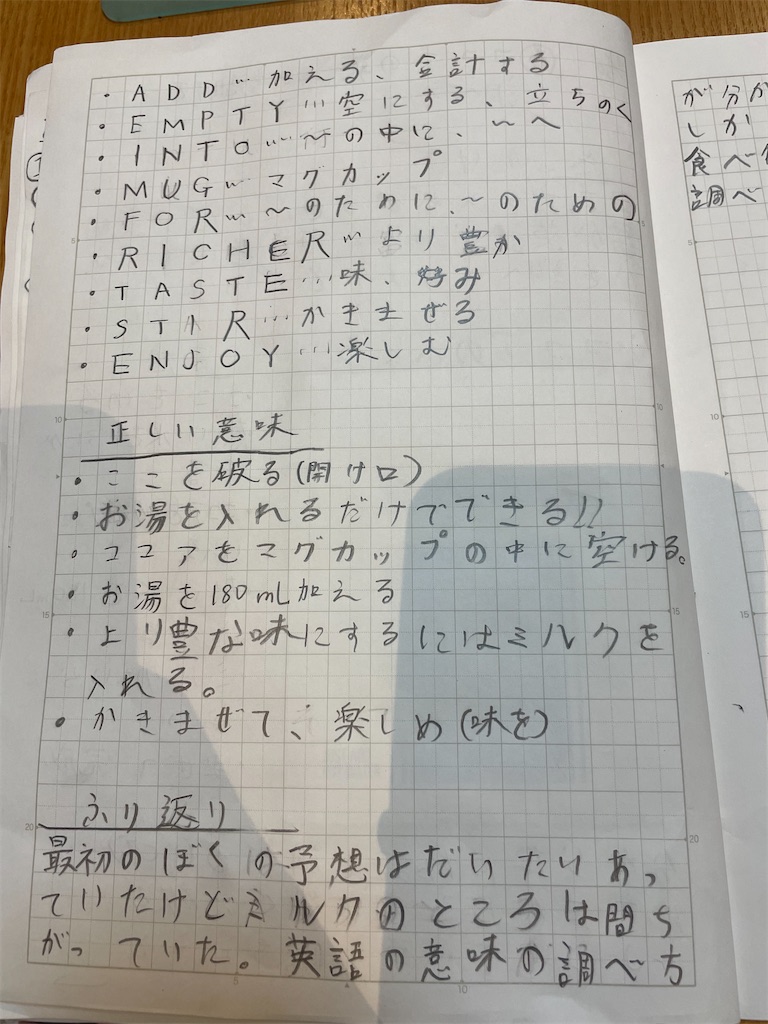 ・ADD…加える、合計する
・EMPTY…空にする、立ちのく
・INTO…〜の中に、〜へ
・MUG…マグカップ
・FOR…〜のために、〜のための
・RICHER…より豊か
・TASTE…味、好み
・STIR…かきまぜる
・ENJOY…楽しむ
正しい意味
・ここを破る(開け口)
・お湯を入れるだけでできる!!
・ココアをマグカップの中に空ける。
・お湯を180mL加える
・より豊な味にするにはミルクを
入れる。
・かきまぜて、楽しめ(味を)
ふり返り
最初のぼくの予想はだいたいあっ
ていたけどミルクのところは間ち
がっていた。英語の意味の調べ方
が分か
しか
食べ
調べ